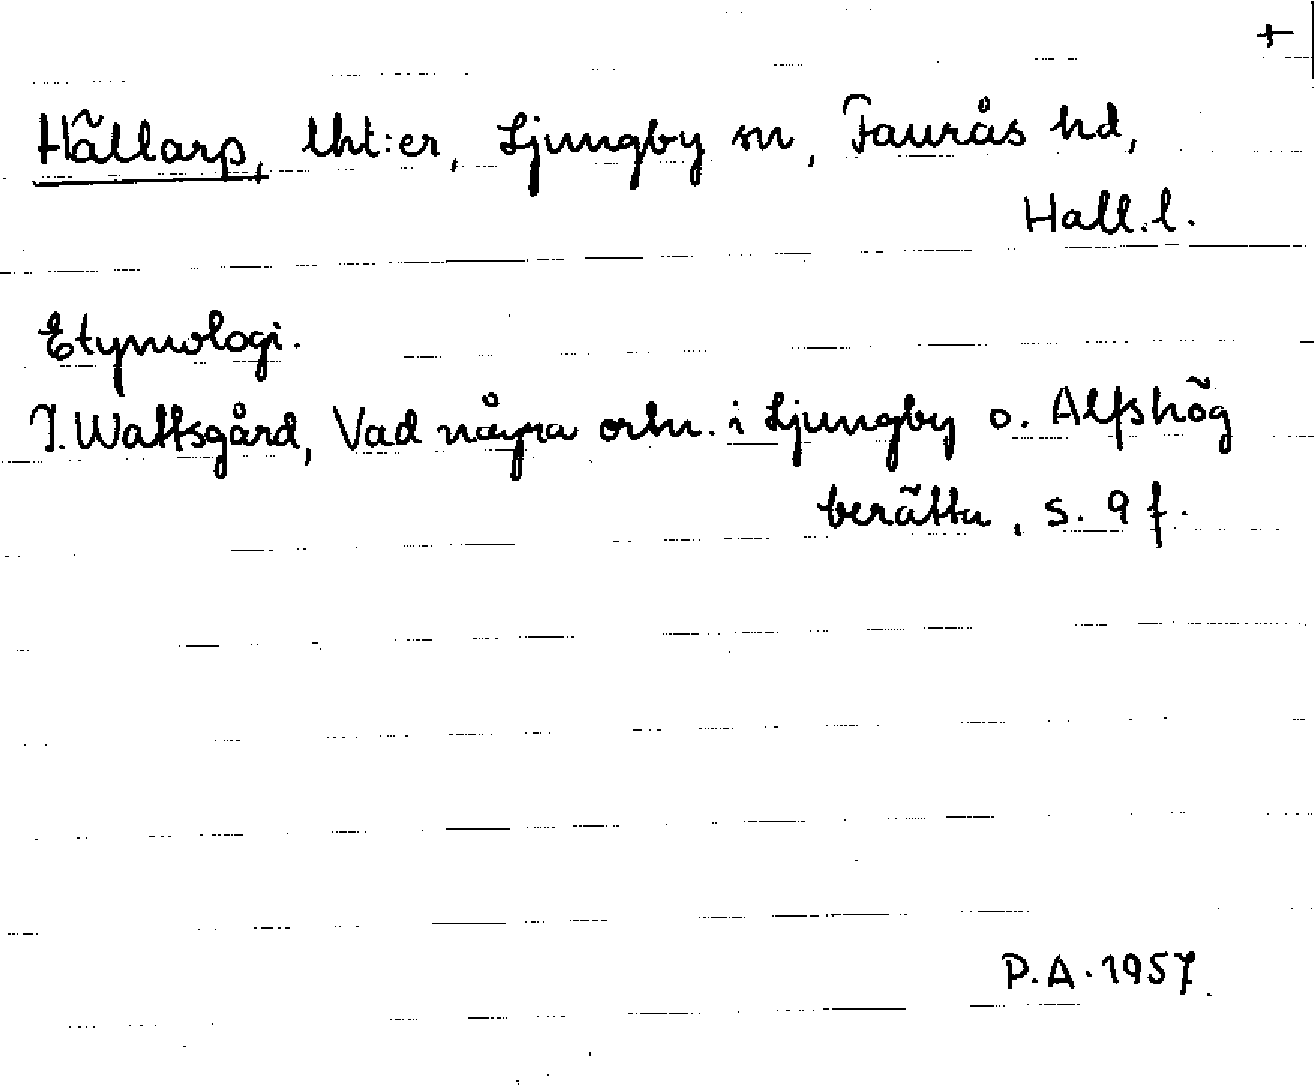 +
Hällarp, lht:er, Ljungby sn, Faurås hd,
Hall.l.
Etymologi.
J. Wattsgård, Vad några ortn. i Ljungby o. Alfshög
berätta, s. 9 f.
P.A. 1957.